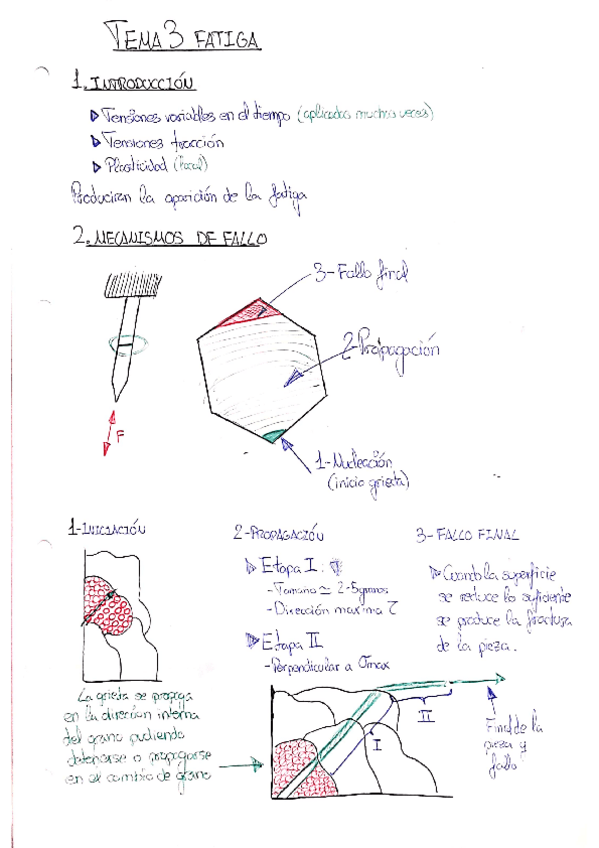 TEMA 3 FATIGA
1. INTRODUCCIÓN
Tensiones variables en el tiempo (aplicadas muchas veces)
Tensiones tracción
Plasticidad (local)
Producirán la aparición de la fatiga
2. MECANISMOS DE FALLO
3- Fallo final
2- Propagación
F
1- Nucleación
(inicio grieta)
1- INICIACIÓN
La grieta se propaga
en la dirección interna
del grano pudiendo
detenerse o propagarse
en el cambio de grano
2- PROPAGACIÓN
Etapa I:
- Tamaño ≃ 2-5 granos
- Dirección maxima τ
Etapa II
- Perpendicular a σmax
3- FALLO FINAL
Cuando la superficie
se reduce lo suficiente
se produce la fractura
de la pieza.
II
I
Final de la
pieza y
fallo